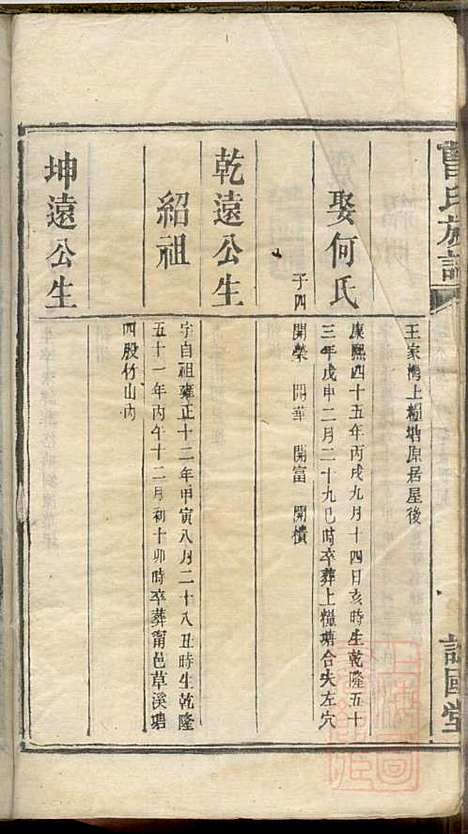 曹氏族譜
譜國堂
王家灣上糧塘原居屋後
娶何氏
康熙四十五年丙戌九月十四日亥時生乾隆五十
三年戊申二月二十九巳時卒葬上糧塘合夫左穴
子四 開榮 開華 開富 開積
乾遠公生
紹祖
字自祖雍正十二年甲寅八月二十八丑時生乾隆
五十一年丙午十二月初十卯時卒葬甯邑草溪塘
四股竹山內
坤遠公生